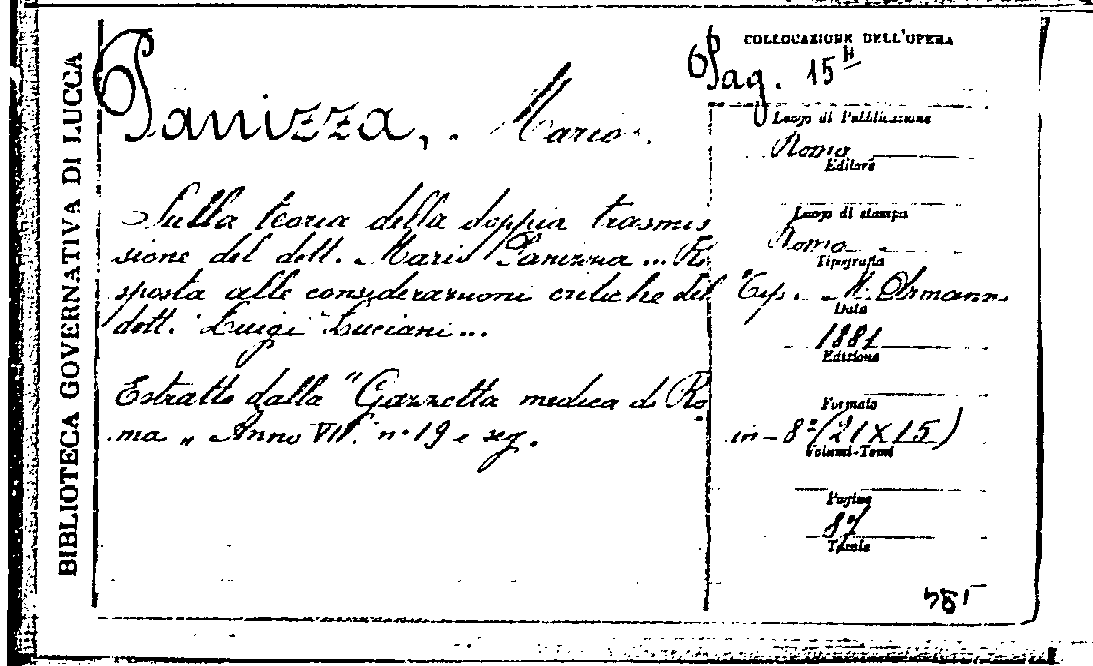 BIBLIOTECA GOVERNATIVA DI LUCCA
Panizza, Mario.
Sulla teoria della doppia trasmis
sione del dott. Mario Panizza ... Ri
sposta alle considerazioni critiche del
dott. Luigi Luciani ...
Estratto dalla "Gazzetta medica di Ro
ma „ Anno VII. n. 19 e seg.
COLLOCAZIONE DELL'OPERA
Pag. 15
Luogo di Pubblicazione
Roma
Editore
Luogo di stampa
Roma
Tipografia
Tip. Ohrmann
Data
1881
Edizione
Formato
in-8º (21 X 15)
Volumi-Tomi
Pagine
87
Tavole